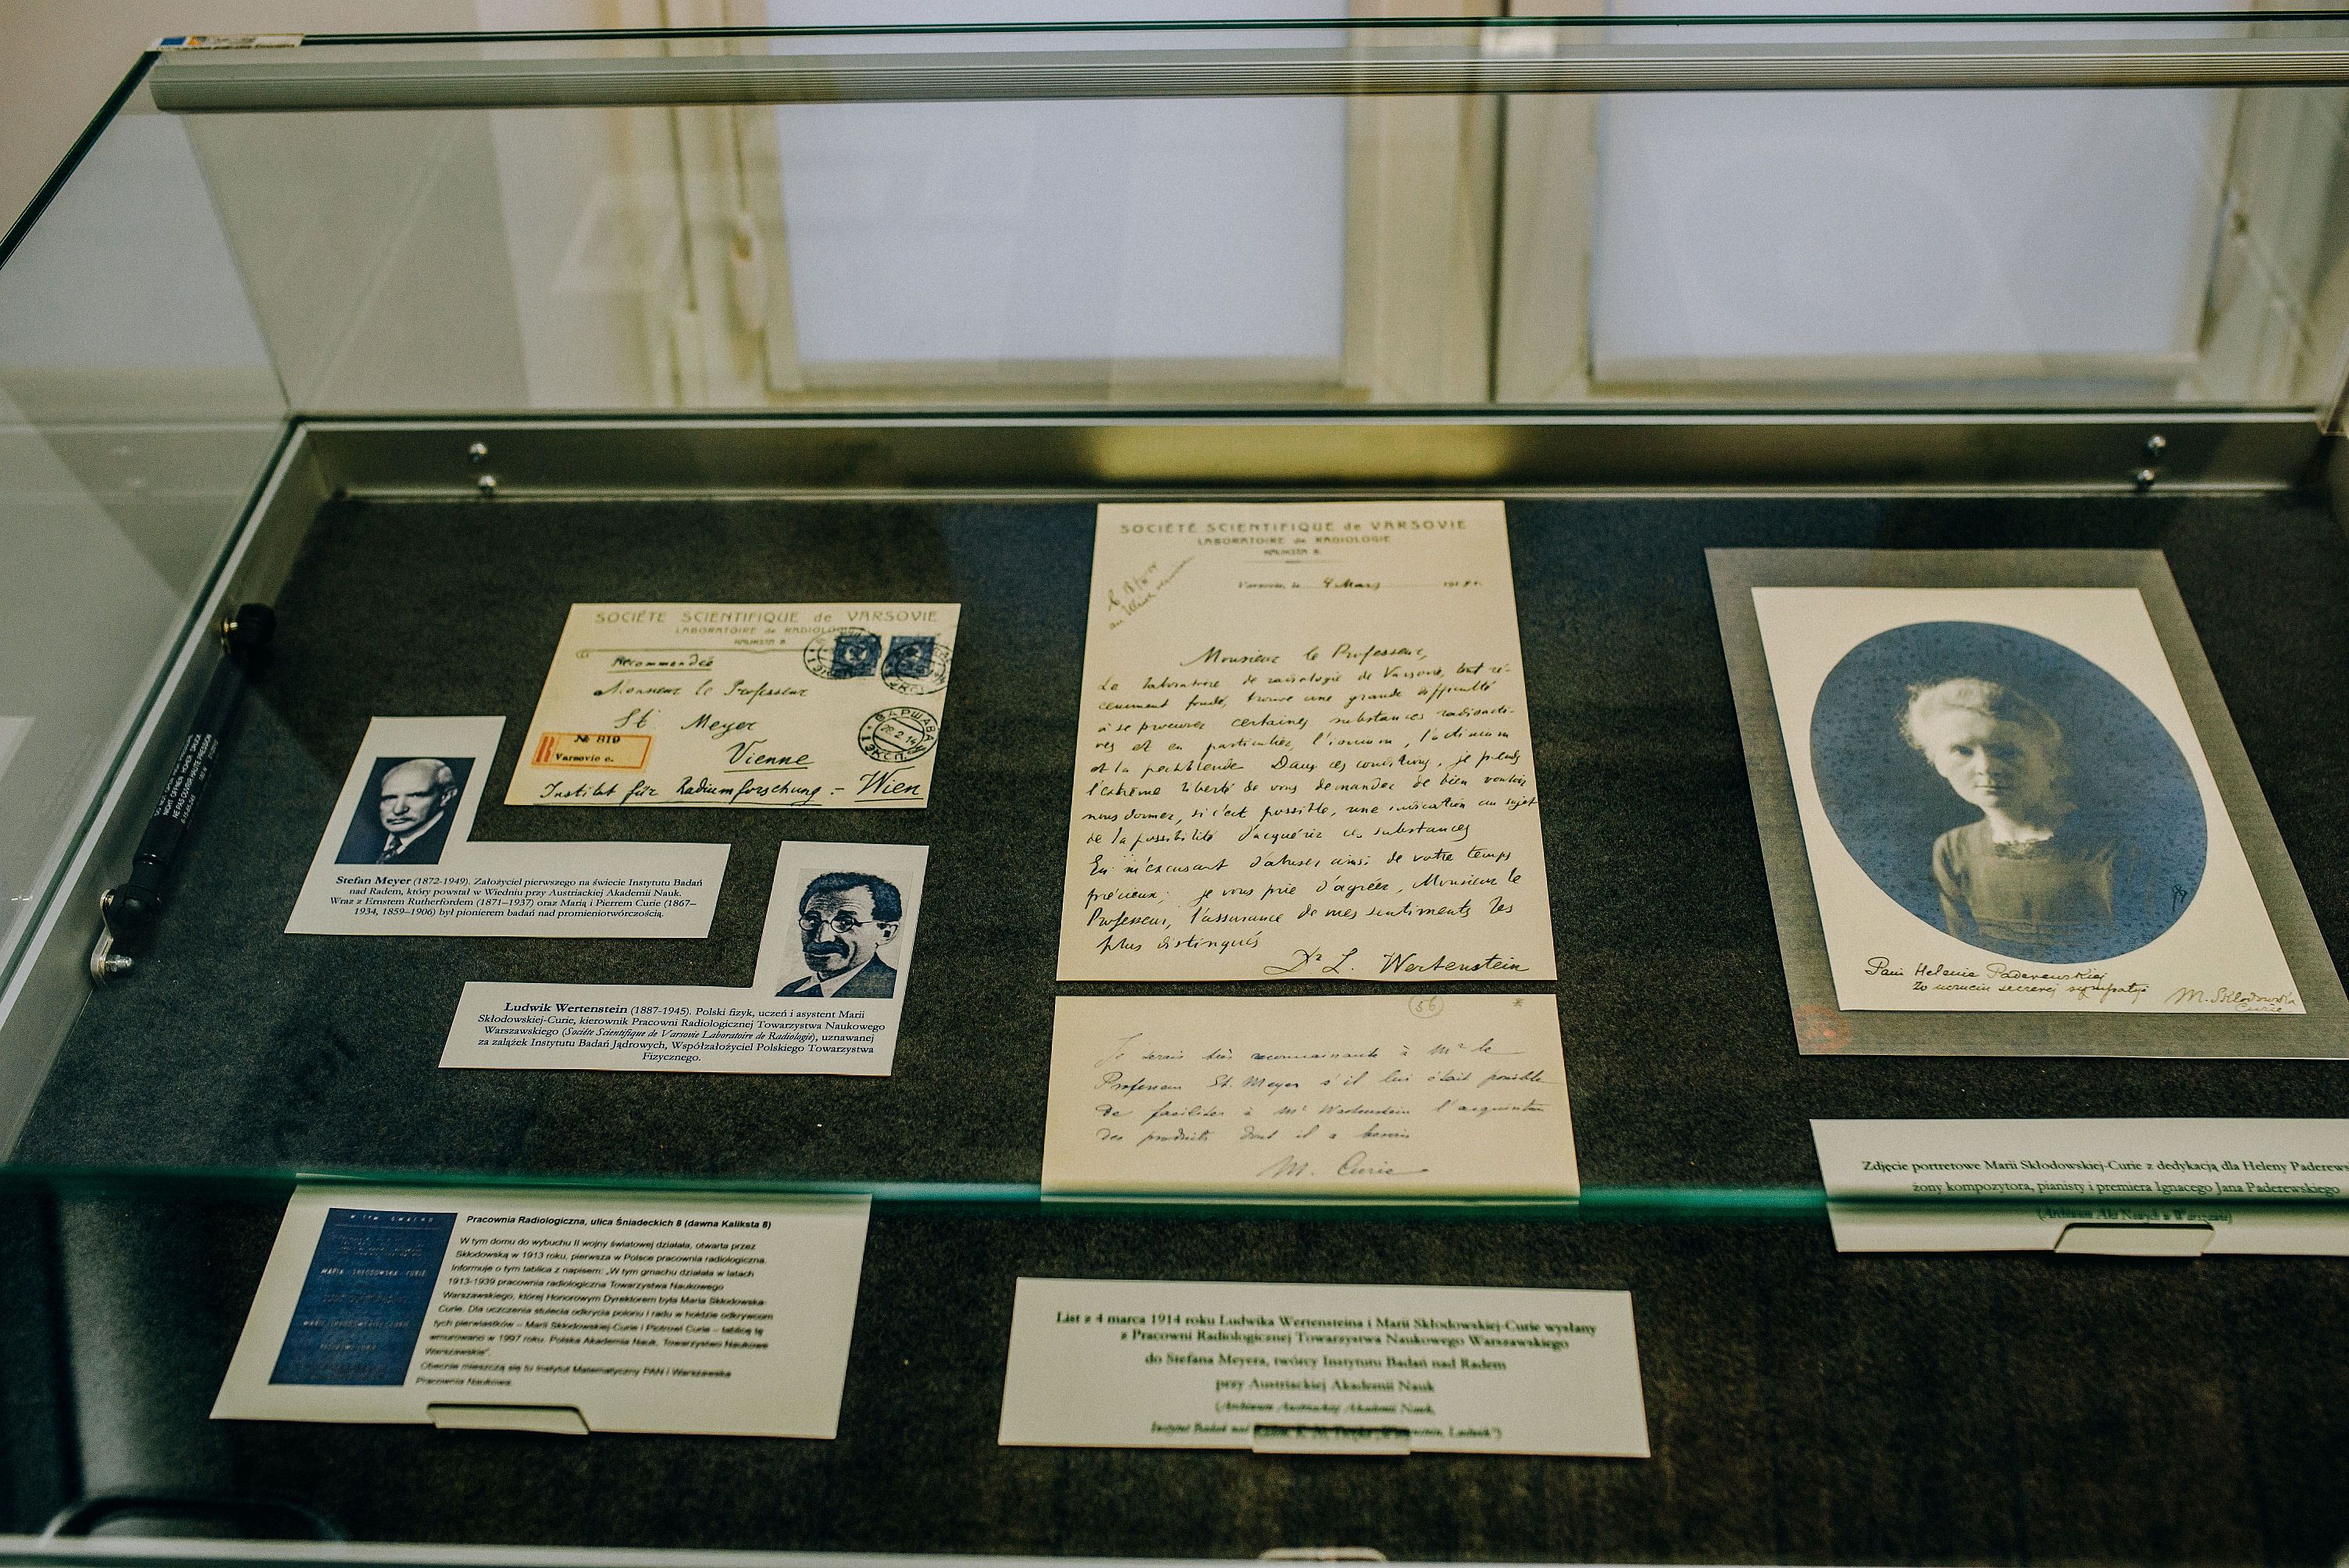 SOCIÉTÉ SCIENTIFIQUE de VARSOVIE
LABORATOIRE de RADIOLOGIE
KALIKSTA 8.
Recommandée
Monsieur le Professeur
St. Meyer
Vienne
Institut für Radiumforschung. — Wien
№ 819
Varsovie c.
ВАРШАВА
Stefan Meyer (1872-1949). Założyciel pierwszego na świecie Instytutu Badań
nad Radem, który powstał w Wiedniu przy Austriackiej Akademii Nauk.
Wraz z Ernstem Rutherfordem (1871–1937) oraz Marią i Pierrem Curie (1867–
1934, 1859–1906) był pionierem badań nad promieniotwórczością.
Ludwik Wertenstein (1887-1945). Polski fizyk, uczeń i asystent Marii
Skłodowskiej-Curie, kierownik Pracowni Radiologicznej Towarzystwa Naukowego
Warszawskiego (Société Scientifique de Varsovie Laboratoire de Radiologie), uznawanej
za zalążek Instytutu Badań Jądrowych, Współzałożyciel Polskiego Towarzystwa
Fizycznego.
SOCIÉTÉ SCIENTIFIQUE de VARSOVIE
LABORATOIRE de RADIOLOGIE
KALIKSTA 8.
Varsovie, le 4 Mars 191
Monsieur le Professeur,
Le laboratoire de radiologie de Varsovie, tout ré-
cemment fondé, trouve une grande difficulté
à se procurer certaines substances radioacti-
ves et en particulier, l'ionium, l'actinium
et la pechblende. Dans ces conditions, je prends
l'extrême liberté de vous demander de bien vouloir
nous donner, si c'est possible, une indication au sujet
de la possibilité d'acquérir ces substances
En m'excusant d'abuser ainsi de votre temps
précieux, je vous prie d'agréer, Monsieur le
Professeur, l'assurance de mes sentiments les
plus distingués
Dr L. Wertenstein
56
Je serais très reconnaissante à Mr le
Professeur St. Meyer s'il lui était possible
de faciliter à Mr Wertenstein l'acquisition
des produits dont il a besoin
M. Curie
Pani Helenie Paderewskiej
z uczuciem szczerej sympatyi
M. Skłodowska
Curie
Zdjęcie portretowe Marii Skłodowskiej-Curie z dedykacją dla Heleny Paderews
żony kompozytora, pianisty i premiera Ignacego Jana Paderewskiego
(Archiwum Akt Nowych w Warszawie)
MARIA SKŁODOWSKA-CURIE
Pracownia Radiologiczna, ulica Śniadeckich 8 (dawna Kaliksta 8)
W tym domu do wybuchu II wojny światowej działała, otwarta przez
Skłodowską w 1913 roku, pierwsza w Polsce pracownia radiologiczna.
Informuje o tym tablica z napisem: „W tym gmachu działała w latach
1913-1939 pracownia radiologiczna Towarzystwa Naukowego
Warszawskiego, której Honorowym Dyrektorem była Maria Skłodowska-
Curie. Dla uczczenia stulecia odkrycia polonu i radu w hołdzie odkrywcom
tych pierwiastków – Marii Skłodowskiej-Curie i Piotrowi Curie – tablicę tę
wmurowano w 1997 roku. Polska Akademia Nauk, Towarzystwo Naukowe
Warszawskie”.
Obecnie mieszczą się tu Instytut Matematyczny PAN i Warszawska
Pracownia Naukowa.
List z 4 marca 1914 roku Ludwika Wertensteina i Marii Skłodowskiej-Curie wysłany
z Pracowni Radiologicznej Towarzystwa Naukowego Warszawskiego
do Stefana Meyera, twórcy Instytutu Badań nad Radem
przy Austriackiej Akademii Nauk
(Archiwum Austriackiej Akademii Nauk,
Instytut Badań nad Radem, Ludwik”)